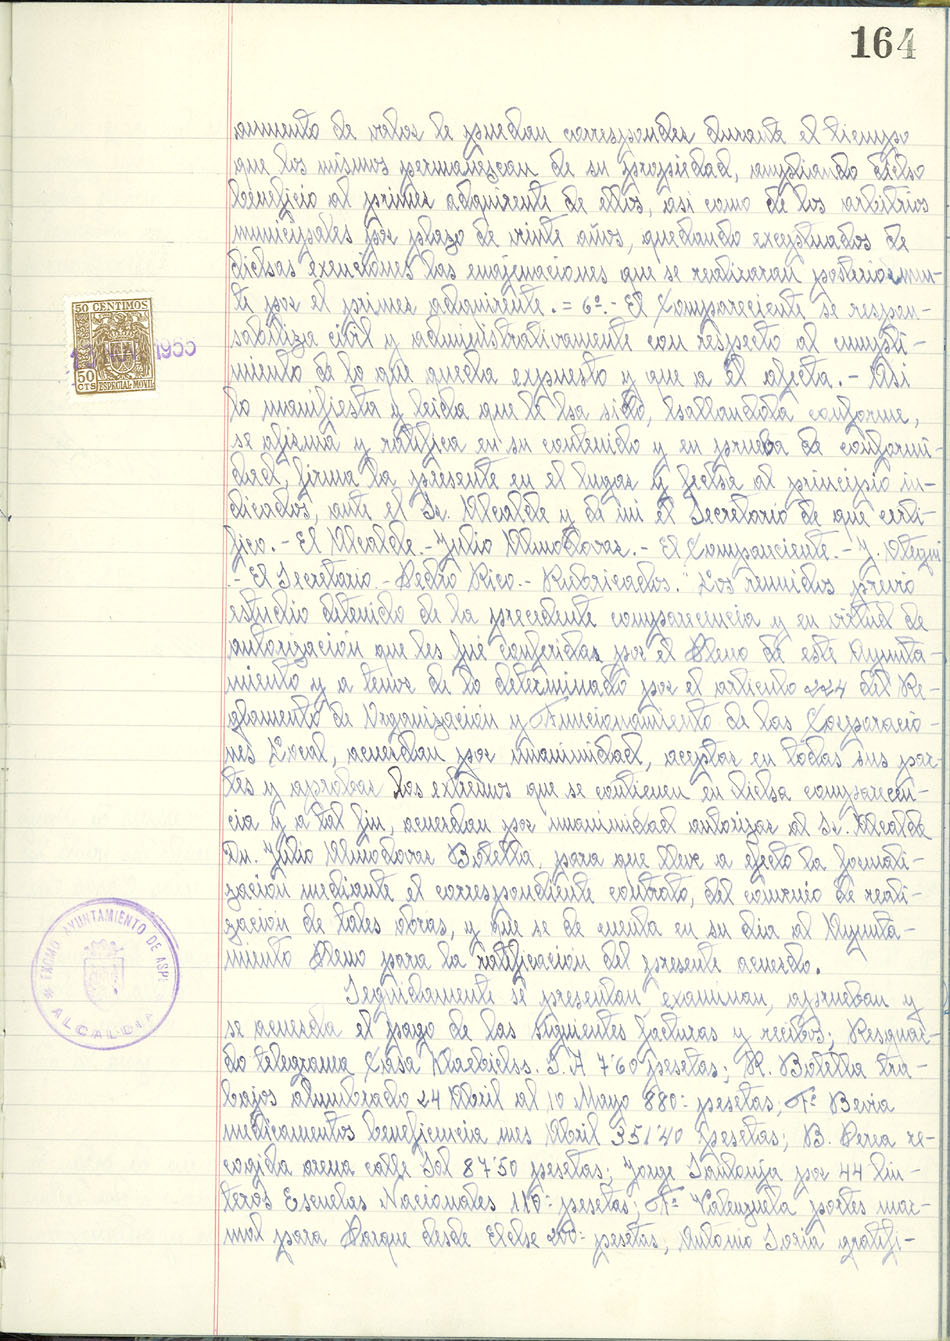 164
aumento de valor le puedan corresponder durante el tiempo
que los mismos permanezcan de su propiedad, ampliando dicho
beneficio al primer adquirente de ellos, asi como de los arbitrios
municipales por plazo de veinte años, quedando exceptuados de
dichas exenciones las enajenaciones que se realizaran posteriormen-
te por el primer adquirente. = 6º.- El Compareciente se respon-
sabiliza civil y administrativamente con respecto al cumpli-
miento de lo que queda expuesto y que a él afecta. - Asi
lo manifiesta y leida que le ha sido, hallandola conforme,
se afirma y ratifica en su contenido y en prueba de conformi-
dad, firma la presente en el lugar y fecha al principio in-
dicados, ante el Sr. Alcalde y de mi el Secretario de que certi-
fico. - El Alcalde.- Julio Almodovar. - El Compareciente. - J.
- El Secretario - Pedro Rico. - Rubricados." Los reunidos previo
estudio detenido de la precedente comparecencia y en virtud de
autorización que les fué conferida por el Pleno de este Ayunta-
miento y a tenor de lo determinado por el articulo 224 del Re-
glamento de Organización y Funcionamiento de las Corporacio-
nes Local, acuerdan por unanimidad, aceptar en todas sus par-
tes y aprobar los extremos que se contienen en dicha comparecen-
cia y a tal fin, acuerdan por unanimidad autorizar al Sr. Alcalde
Dn. Julio Almodovar Botella, para que lleve a efecto la formali-
zación mediante el correspondiente contrato, del convenio de reali-
zación de tales obras, y que se de cuenta en su dia al Ayunta-
miento Pleno para la ratificación del presente acuerdo.
Seguidamente se presentan, examinan, aprueban y
se acuerda el pago de las siguientes facturas y recibos; Resguar-
do telegrama Casa S.A 7'60 pesetas; R. Botella tra-
bajos alumbrado 24 Abril al 10 Mayo 880'- pesetas; Fº Beviá
medicamentos beneficencia mes Abril 351'40 pesetas; B. Perea re-
cogida arena calle Sol 87'50 pesetas; Jorge Santonja por 44 tin-
teros Escuelas Nacionales 110'- pesetas; Fº Valenzuela portes mar-
mol para Parque desde Elche 200'- pesetas, Antonio Soria gratifi-
50 CENTIMOS
1955
50 CTS ESPECIAL MOVIL
EXCMO. AYUNTAMIENTO DE ASPE
* ALCALDIA